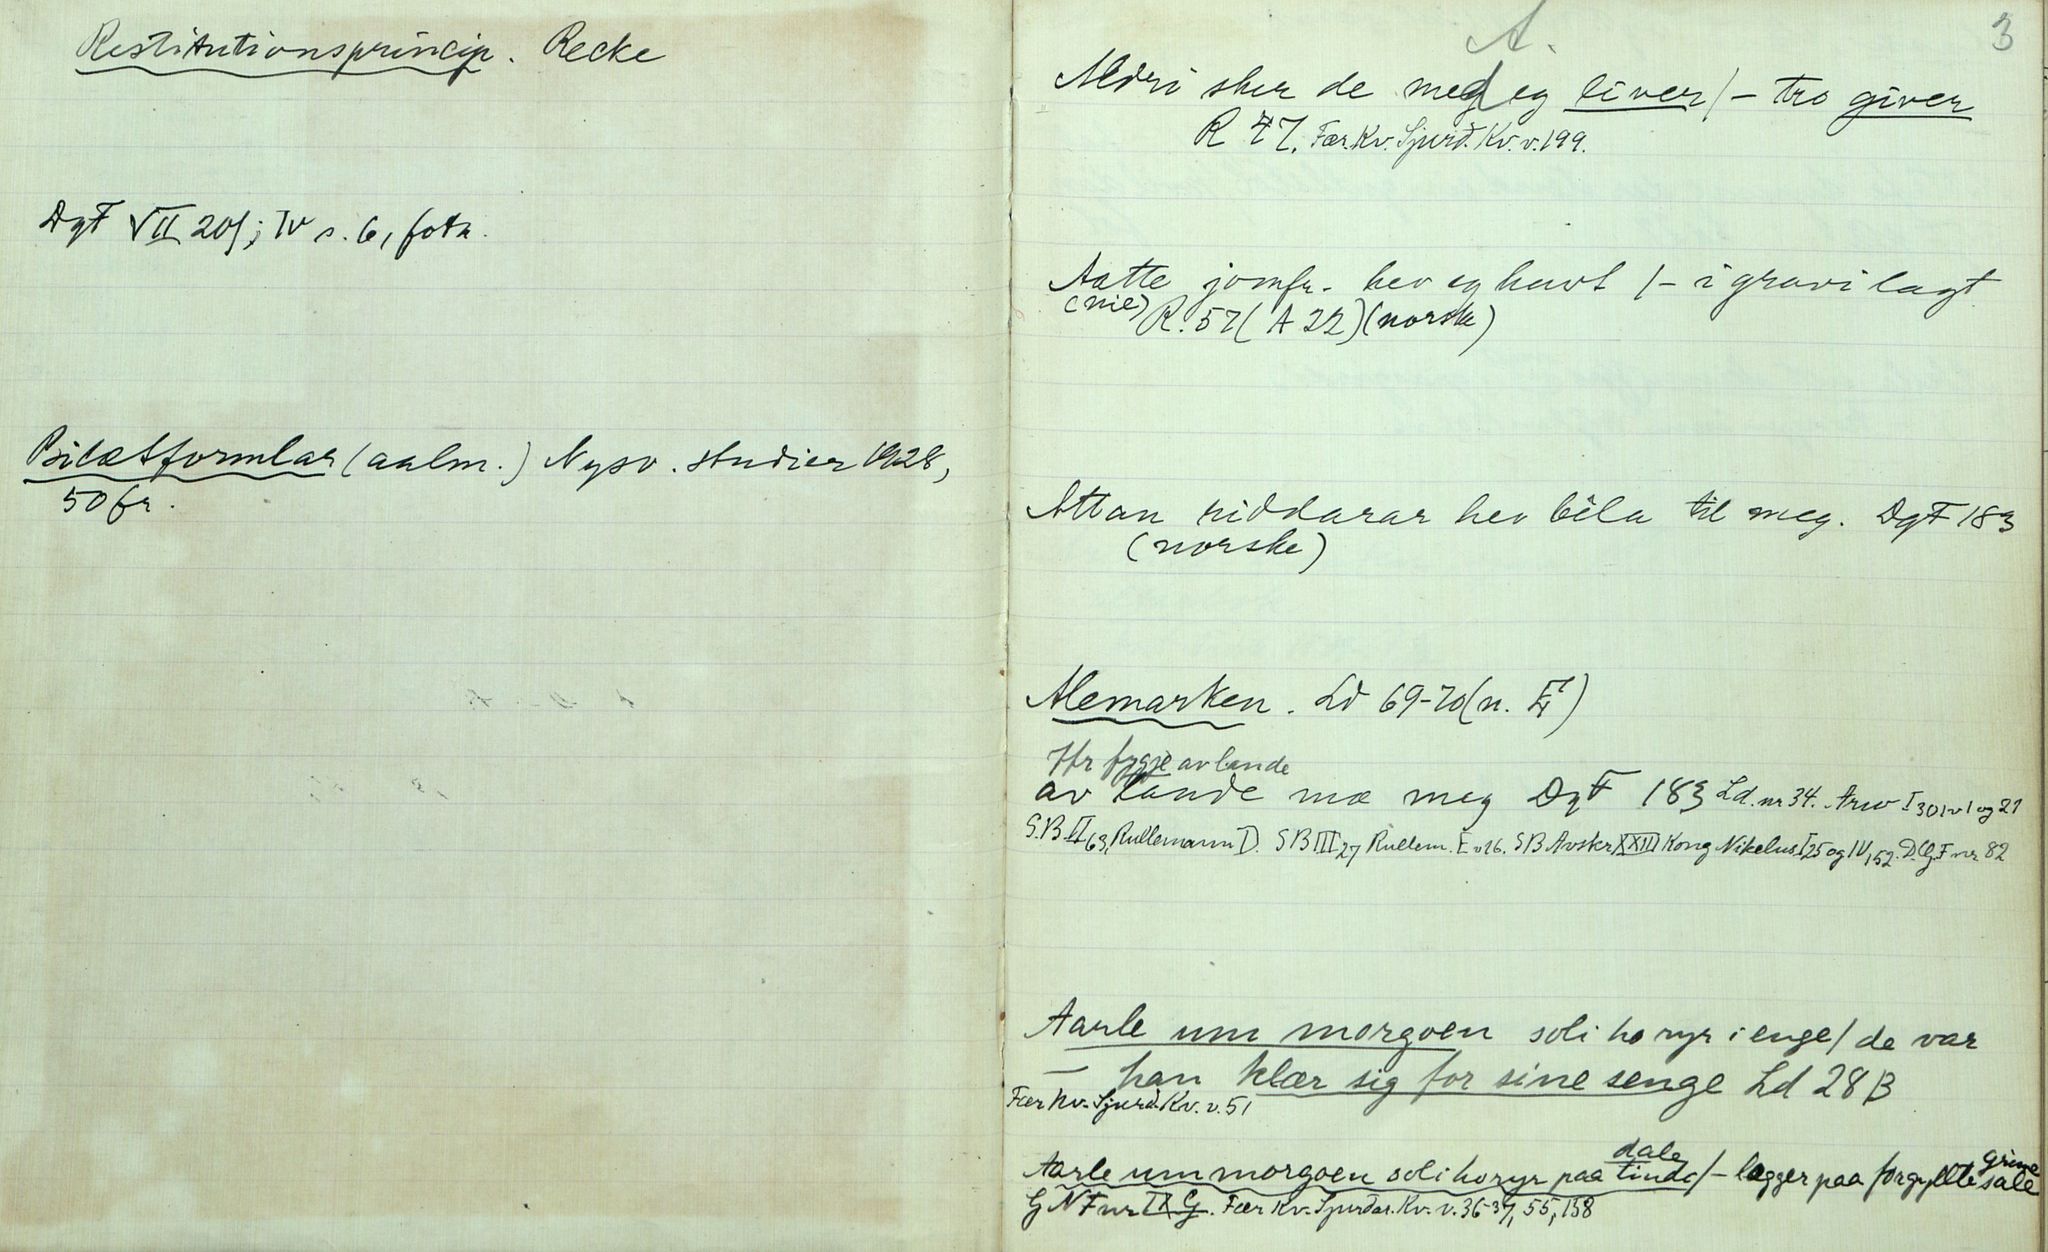 Restitutionsprincip. Recke
DgF VII 20f; IV s. 6, fotn.
Bilætformlar (aalm.) Nysv. studier 1928,
50 fr.
A.
3
Aldri sker de med eg liver / – tro giver
R 47. Fær. Kv. Sjurð. Kv. v. 199.
Aatte jomfr. hev eg havt / – i gravi lagt
(nie) R. 57 (A 22) (norske)
Attan riddarar hev bêla til meg. DgF 183
(norske)
Alemarken. Ld 69-70 (n.
Jfr fygje av lande
av lande mæ meg DgF 183 Ld. nr 34. Arw I 301 v 1 og 21
S.B II 63, Rullemann D. SB III 27 Rullem. E v 16. SB Avskr XXII Kong Nikelus I 25 og IV, 52. D.G.F nr 82
Aarle um morgoen soli ho ryr i enge / de var
– han klær sig for sine senge Ld 28 B
Fær Kv. Sjurd. Kv. v. 51
dale grime
Aarle um morgoen soli ho ryr paa tinde / – legger paa forgyllte sale
G N F nr IX G. Fær Kv. Sjurdar. Kv. v. 36-37, 55, 158